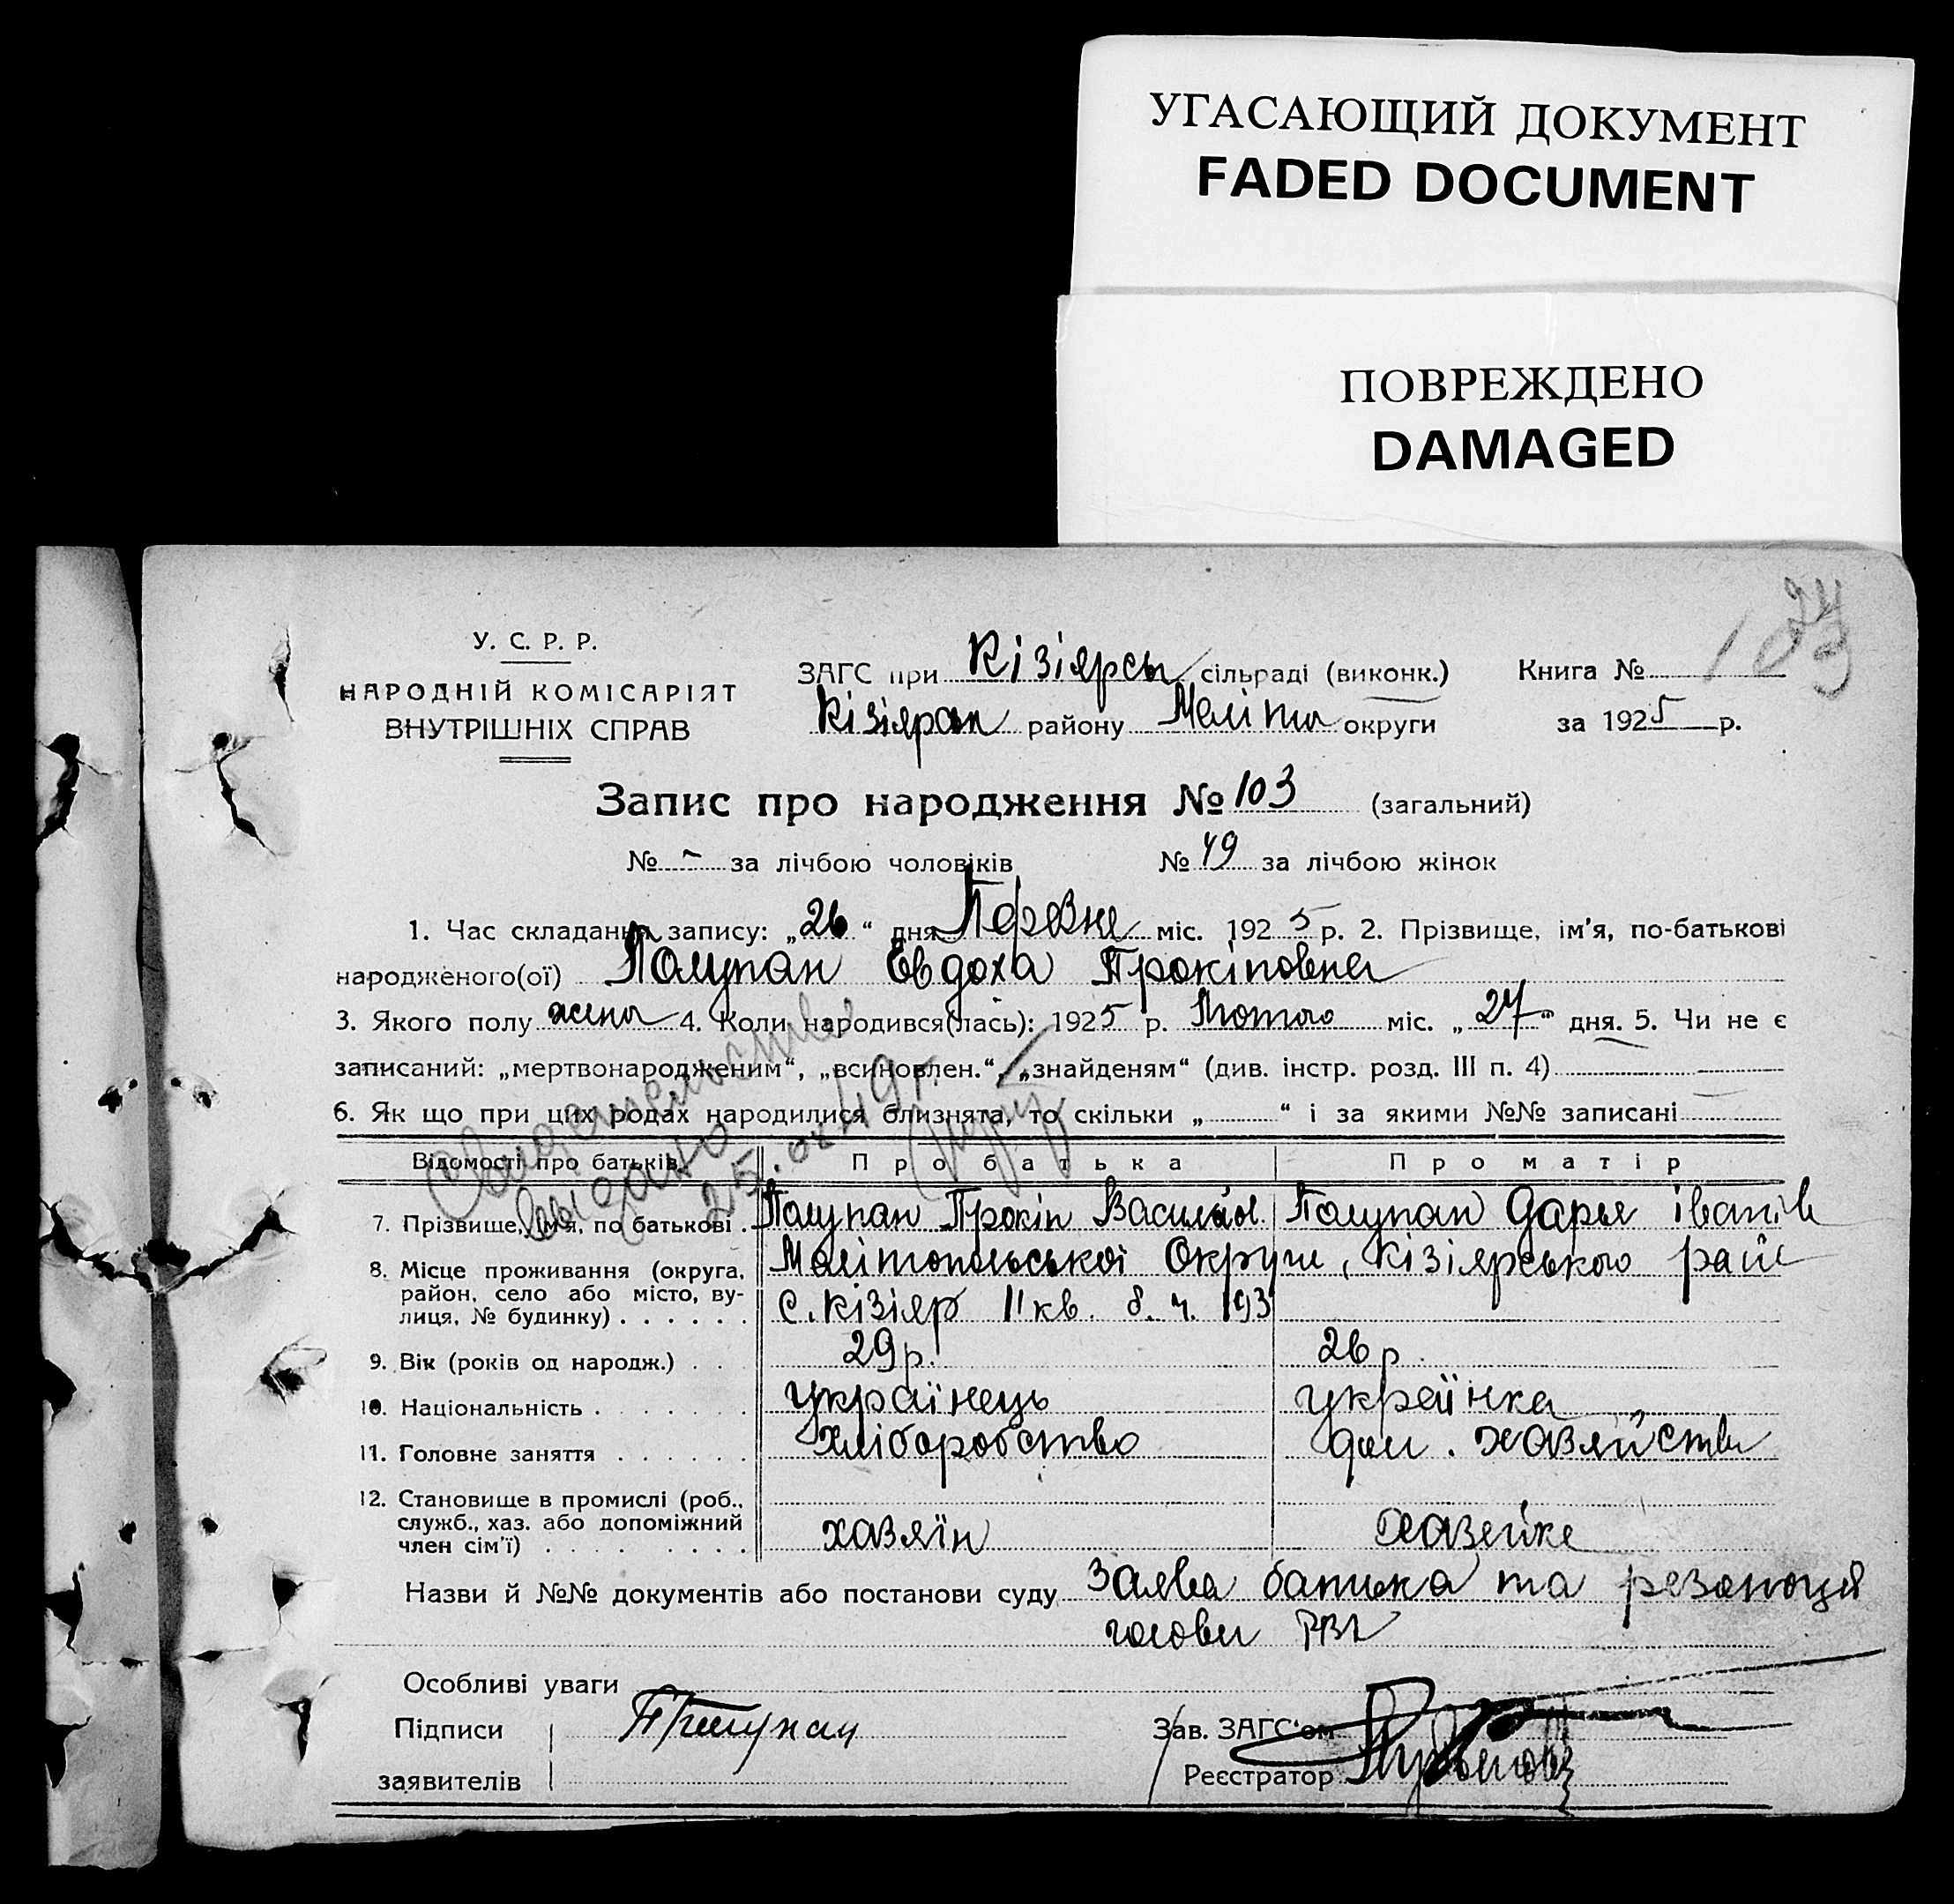 УГАСАЮЩИЙ ДОКУМЕНТ
FADED DOCUMENT
ПОВРЕЖДЕНО
DAMAGED
У. С. Р. Р.
НАРОДНІЙ КОМІСАРІЯТ
ВНУТРІШНІХ СПРАВ
ЗАГС при Кізіярсы сільраді (виконк.) Книга №
103
Кізіярск району Меліто округи за 1925 р.
Запис про народження № 103 (загальний)
№ - за лічбою чоловіків № 49 за лічбою жінок
1. Час складання запису: „26“ дня міс. 1925 р. 2. Прізвище, ім'я, по-батькові
народженого(ої) Полупан Евдоха Прокіповна
3. Якого полу жена 4. Коли народився(лась): 1925 р. Лютого міс. „27“ дня. 5. Чи не є
записаний: „мертвонародженим“, „всиновлен.“, „знайденям“ (див. інстр. розд. III п. 4)
6. Як що при цих родах народилися близнята, то скільки „ “ і за якими №№ записані
Свидетельство
выдано
Відомості про батьків Про батька Про матір
7. Прізвище, ім'я, по батькові . Полупан Прокіп Василів Полупан Дарья Іванів
8. Місце проживання (округа, Мелітопольської Округи, Кізіярського райо
район, село або місто, ву-
лиця, № будинку) . . . . . . с. Кізіяр II кв. д. ч. 193
9. Вік (років од народж.) . . . 29 р. 26 р.
10. Національність . . . . . . . українець українка
11. Головне заняття . . . . . . хліборобство дом. хазяйство
12. Становище в промислі (роб.,
служб., хаз. або допоміжний
член сім'ї) . . . . . . . . . хазяїн хазейка
Назви й №№ документів або постанови суду Заява батька та резолюція
голови РВК
Особливі уваги
Підписи П Полупан Зав. ЗАГС'ом
заявителів Реєстратор